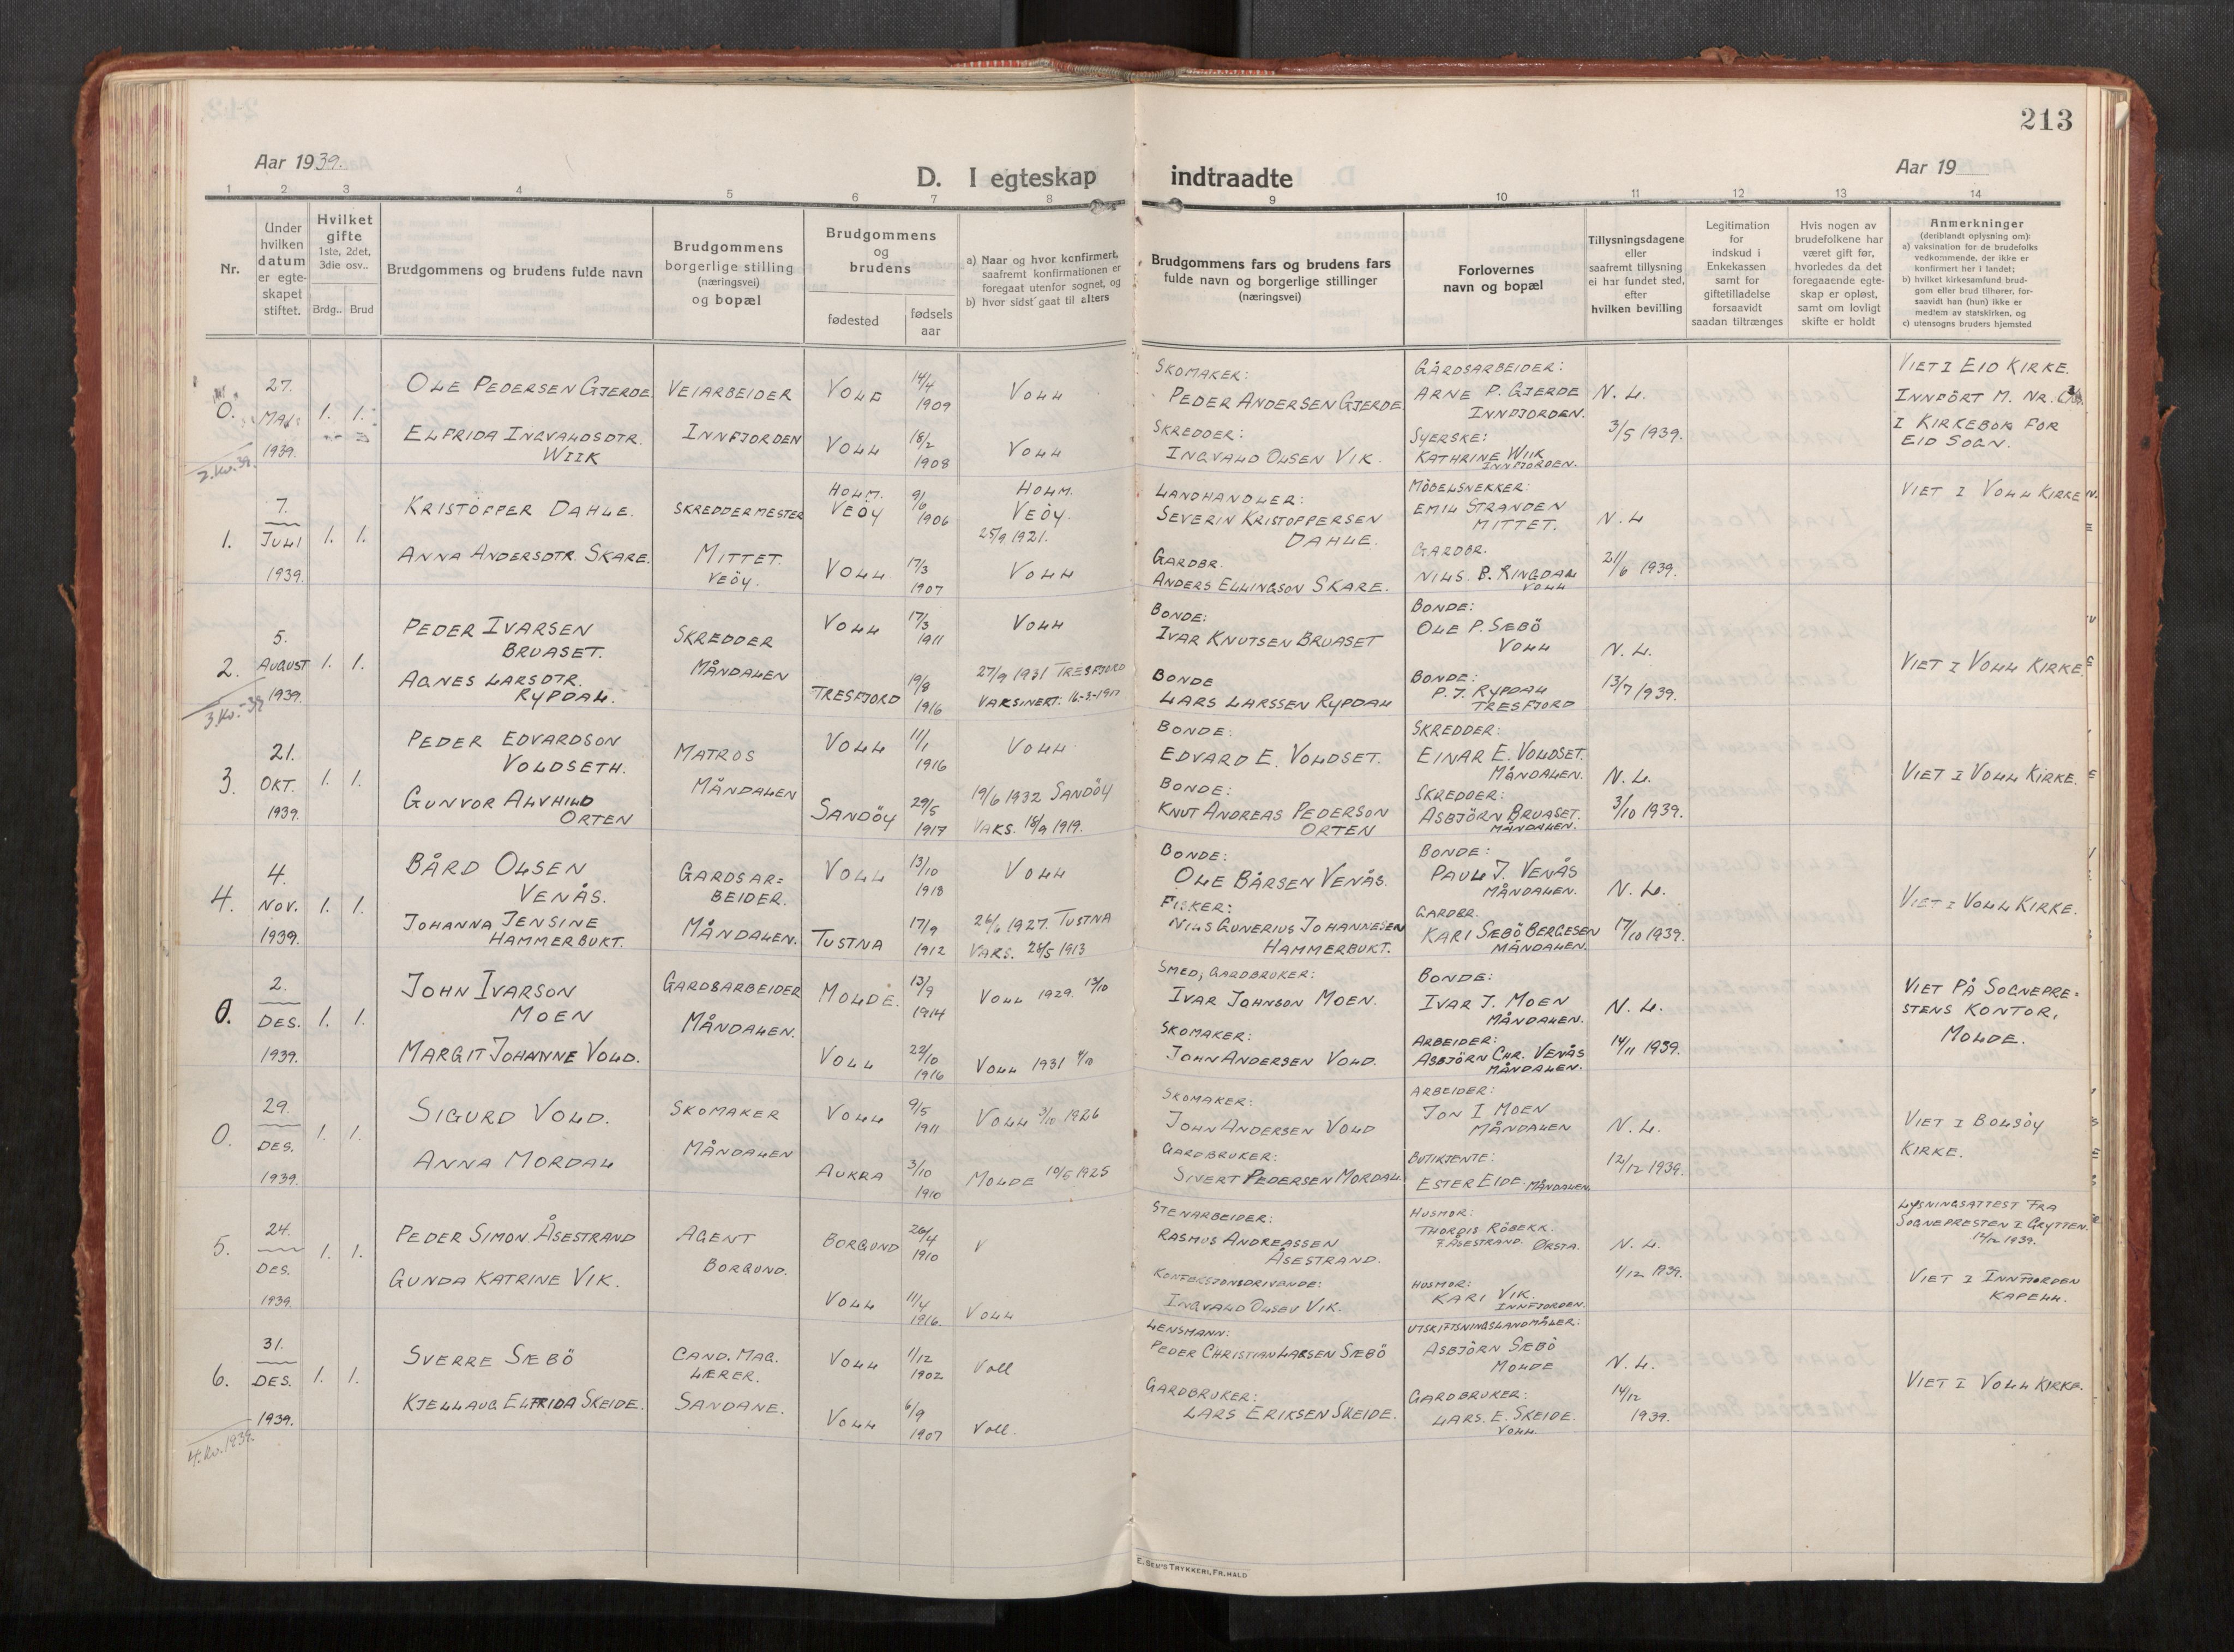 213
Aar 1939.
D. I egteskap indtraadte
Aar 19
1 2 3 4 5 6 7 8 9 10 11 12 13 14
Nr.
Under
hvilken
datum
er egte-
skapet
stiftet.
Hvilket
gifte
1ste, 2det,
3die osv..
Brdg.. Brud
Brudgommens og brudens fulde navn
Brudgommens
borgerlige stilling
(næringsvei)
og bopæl
Brudgommens
og
brudens
fødested
fødsels
aar
a) Naar og hvor konfirmert,
saafremt konfirmationen er
foregaat utenfor sognet, og
b) hvor sidst gaat til alters
Brudgommens fars og brudens fars
fulde navn og borgerlige stillinger
(næringsvei)
Forlovernes
navn og bopæl
Tillysningsdagene
eller
saafremt tillysning
ei har fundet sted,
efter
hvilken bevilling
Legitimation
for
indskud i
Enkekassen
samt for
giftetilladelse
forsaavidt
saadan tiltrænges
Hvis nogen av
brudefolkene har
været gift før,
hvorledes da det
foregaaende egte-
skap er opløst,
samt om lovligt
skifte er holdt
Anmerkninger
(deriblandt oplysning om):
a) vaksination for de brudefolks
vedkommende, der ikke er
konfirmert her i landet;
b) hvilket kirkesamfund brud-
gom eller brud tilhører, for-
saavidt han (hun) ikke er
medlem av statskirken, og
c) utensogns bruders hjemsted
0.
27.
MAI
1939.
1. 1.
OLE PEDERSEN GJERDE
ELFRIDA INGVALDSDTR.
WIIK
VEIARBEIDER
INNFJORDEN
VOLL 14/4 1909 VOLL
VOLL 18/2 1908 VOLL
SKOMAKER:
PEDER ANDERSEN GJERDE
SKREDDER:
INGVALD OLSEN VIK.
GÅRDSARBEIDER:
ARNE P. GJERDE
INNFJORDEN.
SYERSKE:
KATHRINE WIIK
INNFJORDEN.
N. L.
3/5 1939.
VIET I EID KIRKE.
INNFÖRT M. NR.
I KIRKEBOK FOR
EID SOGN.
2. Kv. 39.
1.
7.
JULI
1939.
1. 1.
KRISTOFFER DAHLE.
ANNA ANDERSDTR. SKARE.
SKREDDERMESTER
MITTET.
VEÖY.
HOLM.
VEÖY
9/6 1906
HOLM.
VEÖY.
25/9 1921.
VOLL 17/3 1907 VOLL
LANDHANDLER:
SEVERIN KRISTOFFERSEN
DAHLE.
GARDBR.
ANDERS ELLINGSON SKARE.
MÖBELSNEKKER:
EMIL STRANDEN
MITTET.
GARDBR.
NILS. B. RINGDAL
VOLL
N. L
21/6 1939.
VIET I VOLL KIRKE
2.
5.
AUGUST
1939.
1. 1.
PEDER IVARSEN
BRUASET.
AGNES LARSDTR.
RYPDAL.
SKREDDER
MÅNDALEN
VOLL 17/3 1911 VOLL
TRESFJORD 19/8 1916
27/9 1931 TRESFJORD
VAKSINERT: 16-3-1917
BONDE:
IVAR KNUTSEN BRUASET
BONDE
LARS LARSSEN RYPDAL
BONDE:
OLE P. SÆBÖ
VOLL
BONDE:
P. J. RYPDAL
TRESFJORD
N. L.
13/7 1939.
VIET I VOLL KIRKE.
3. Kv.-39
3.
21.
OKT.
1939.
1. 1.
PEDER EDVARDSON
VOLDSETH.
GUNVOR ALVHILD
ORTEN
MATROS
MÅNDALEN
VOLL 11/1 1916 VOLL
SANDÖY 29/5 1917
19/6 1932 SANDÖY
VAKS. 18/9 1919.
BONDE:
EDVARD E. VOLDSET.
BONDE:
KNUT ANDREAS PEDERSON
ORTEN
SKREDDER:
EINAR E. VOLDSET.
MÅNDALEN.
SKREDDER:
ASBJÖRN BRUASET.
MÅNDALEN.
N. L.
3/10 1939.
VIET I VOLL KIRKE.
4.
4.
NOV.
1939.
1. 1.
BÅRD OLSEN
VENÅS.
JOHANNA JENSINE
HAMMERBUKT.
GARDSAR=
BEIDER.
MÅNDALEN.
VOLL 13/10 1918 VOLL
TUSTNA 17/9 1912
26/6 1927. TUSTNA
VAKS. 28/5 1913
BONDE:
OLE BÅRSEN VENÅS.
FISKER:
NILS GUNERIUS JOHANNESEN
HAMMERBUKT.
BONDE:
PAUL J. VENÅS
MÅNDALEN.
GARDBR.
KARI SÆBÖ BERGESEN
MÅNDALEN.
N. L.
17/10 1939.
VIET I VOLL KIRKE.
0.
2.
DES.
1939.
1. 1.
JOHN IVARSON
MOEN
MARGIT JOHANNE VOLD.
GARDSARBEIDER
MÅNDALEN.
MOLDE. 13/9 1914 VOLL 1929. 13/10
VOLL 22/10 1916 VOLL 1931 4/10
SMED, GARDBRUKER:
IVAR JOHNSON MOEN.
SKOMAKER:
JOHN ANDERSEN VOLD.
BONDE:
IVAR J. MOEN
MÅNDALEN.
ARBEIDER:
ASBJÖRN CHR. VENÅS
MÅNDALEN.
N. L.
14/11 1939.
VIET PÅ SOGNEPRE=
STENS KONTOR,
MOLDE.
0.
29.
DES.
1939.
1. 1.
SIGURD VOLD.
ANNA MORDAL
SKOMAKER
MÅNDALEN
VOLL 9/5 1911 VOLL 3/10 1926
AUKRA 3/10 1910 MOLDE 10/5 1925
SKOMAKER:
JOHN ANDERSEN VOLD
GARDBRUKER:
SIVERT PEDERSEN MORDAL.
ARBEIDER:
JON I MOEN
MÅNDALEN
BUTIKJENTE:
ESTER EIDE. MÅNDALEN
N. L.
12/12 1939.
VIET I BOLSÖY
KIRKE.
5.
24.
DES.
1939.
1. 1.
PEDER SIMON ÅSESTRAND
GUNDA KATRINE VIK.
AGENT
BORGUND.
BORGUND 26/4 1910 V
VOLL 11/4 1916. VOLL
STENARBEIDER:
RASMUS ANDREASSEN
ÅSESTRAND.
KONFEKSJONSDRIVENDE:
INGVALD OLSEN VIK.
HUSMOR:
THORDIS RÖBEKK.
F. ÅSESTRAND. ØRSTA.
HUSMOR:
KARI VIK.
INNFJORDEN.
N. L.
1/12 1939.
LYSNINGSATTEST FRA
SOGNEPRESTEN I GRYTTEN.
14/12 1939.
VIET I INNFJORDEN
KAPELL.
6.
31.
DES.
1939.
1. 1.
SVERRE SÆBÖ
KJELLAUG ELFRIDA SKEIDE.
CAND. MAG.
LÆRER.
SANDANE.
VOLL 1/12 1902 Voll
VOLL 6/9 1907 Voll.
LENSMANN:
PEDER CHRISTIAN LARSEN SÆBÖ
GARDBRUKER:
LARS ERIKSEN SKEIDE.
UTSKIFTNINGSLANDMÅLER:
ASBJÖRN SÆBÖ
MOLDE
GARDBRUKER:
LARS. E. SKEIDE.
VOLL.
N. L.
14/12
1939.
VIET I VOLL KIRKE.
4. Kv. 1939.
E. SEM'S TRYKKERI, FR.HALD